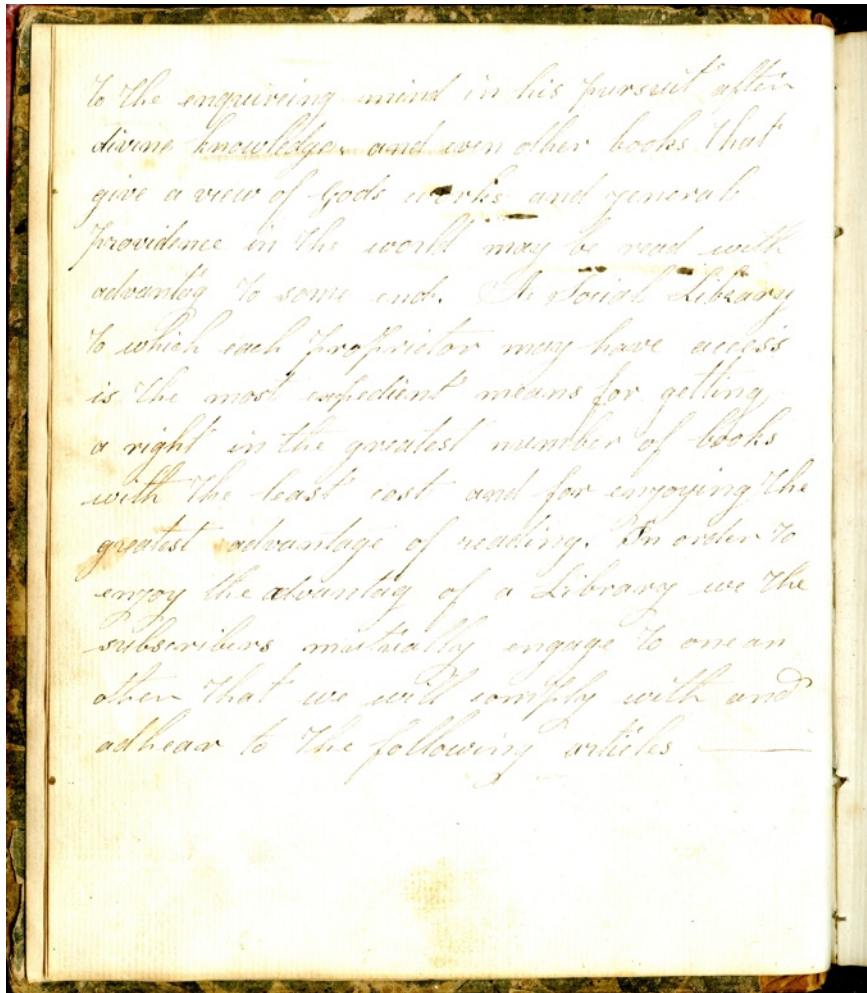 to the enquireing mind in his pursuit after
divine knowledge and even other books that
give a view of Gods works and general
providence in the world may be read with
advantag to some end. A Social Library
to which each proprietor may have access
is the most expedient means for getting
a right in the greatest number of books
with the least cost and for enjoying the
greatest advantage of reading. In order to
enjoy the advantag of a Library we the
subscribers mutually engage to one an
other that we will comply with and
adhear to the following articles —